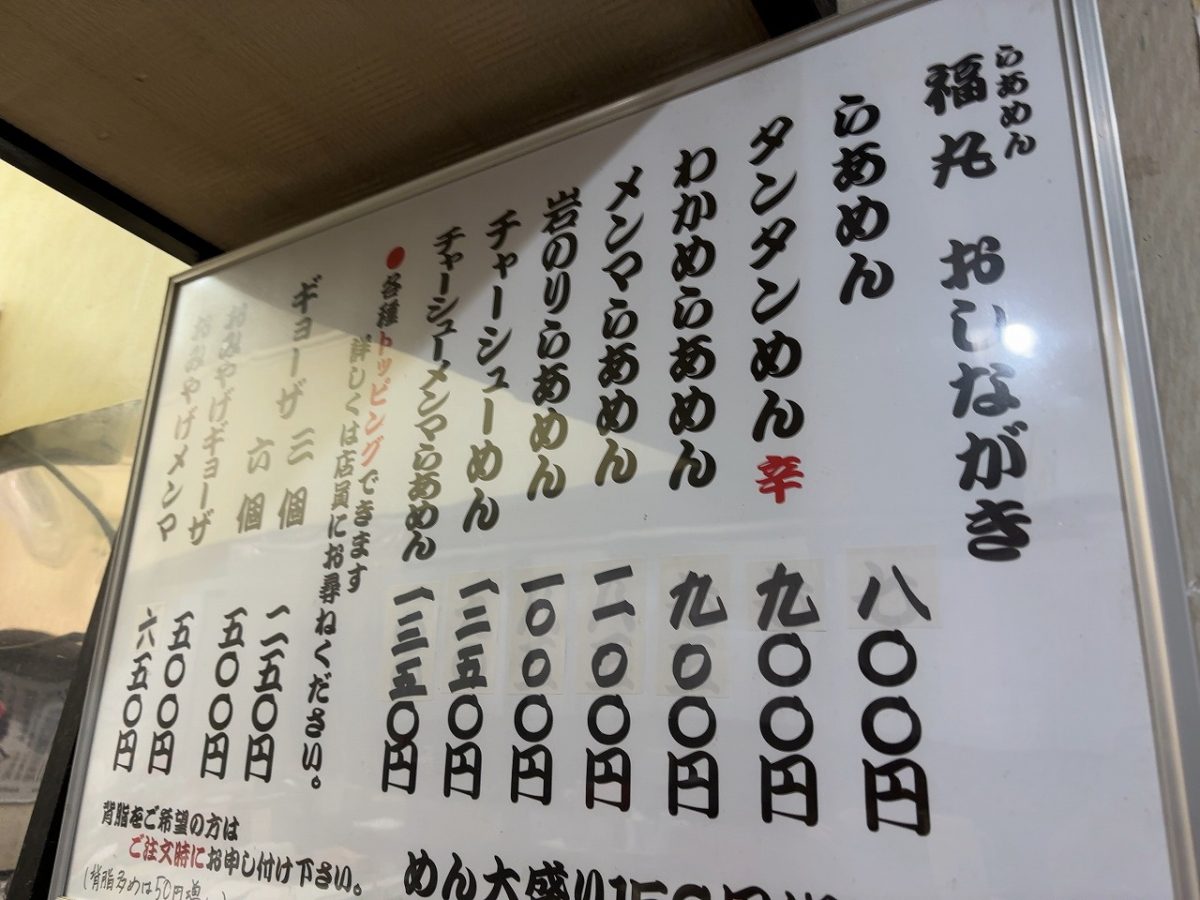 らあめん
福丸 おしながき
らあめん 八〇〇円
タンタンめん 辛 九〇〇円
わかめらあめん 九〇〇円
メンマらあめん 一一〇〇円
岩のりらあめん 一〇〇〇円
チャーシューめん 一二五〇円
チャーシューメンマらあめん 一三五〇円
●各種トッピングできます
詳しくは店員にお尋ねください。
ギョーザ 三個 二五〇円
六個 五〇〇円
おみやげギョーザ 五〇〇円
おみやげメンマ 六五〇円
背脂をご希望の方は
ご注文時にお申し付け下さい。
(背脂多めは50円増
めん大盛り150円